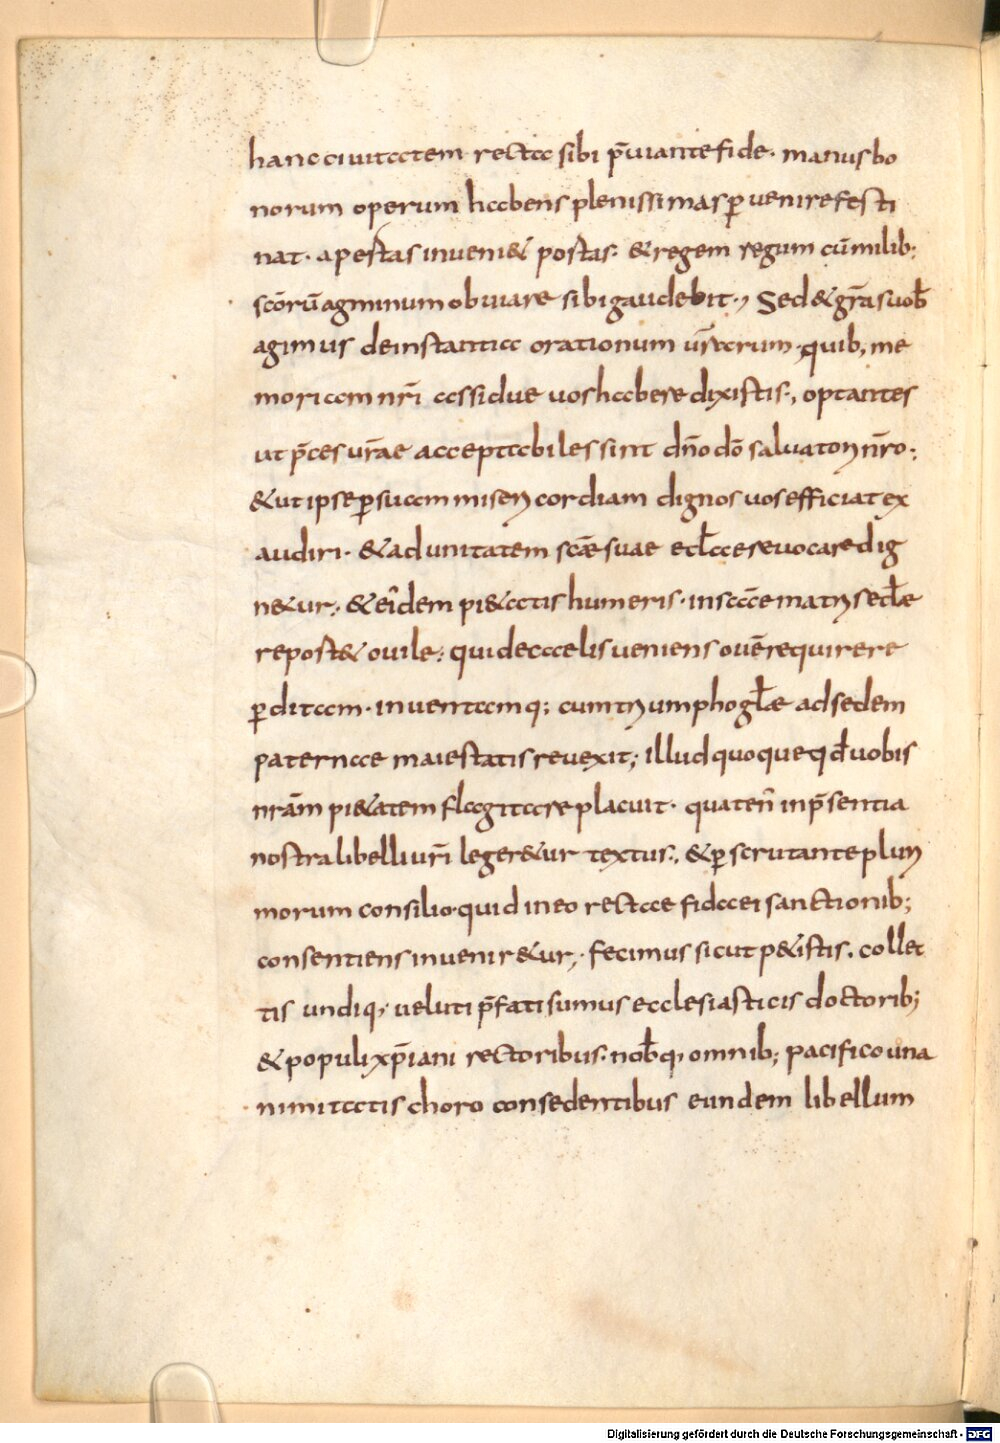 hanc civitatem recta sibi p̄viante fide· manus bo
norum operum habens plenissimas ꝑvenire festi
nat· apertas inveni& portas· & regem regum cū milib;
scōrū agminum obviare sibi gaudebit·, Sed & gr̄as vob̄
agimus de instantia orationum vr̄arum· quib; me
moriam nr̄i assidue vos habere dixistis·, optantes
ut p̄ces vr̄ae acceptabiles sint dn̄o dō salvatori nr̄o;
& ut ipse ꝑ suam misericordiam dignos vos efficiat ex
audiri· & ad unitatem scāe suae eccl̄ae revocare dig
n&ur; & eīdem pi&atis humeris· in scāe matris eccl̄ae
repost& ovile; qui de caelis veniens ovē requirere
ꝑditam· inventamq; cum triumpho gl̄ae ad sedem
paternae maiestatis revexit; illud quoque qd̄ vobis
nrām pi&atem flagitare placuit· quaten̄ in p̄sentia
nostra libelli vr̄i leger&ur textus·, & ꝑscrutante pluri
morum consilio· quid in eo rectae fidaei sanctionib;
consentiens invenir&ur; fecimus sicut p&istis· collec
tis undiq; veluti p̄fati sumus ecclesiasticis doctorib;
& populi xp̄iani rectoribus· nob̄q; omnib; pacifico una
nimitatis choro consedentibus eundem libellum
Digitalisierung gefördert durch die Deutsche Forschungsgemeinschaft - DFG